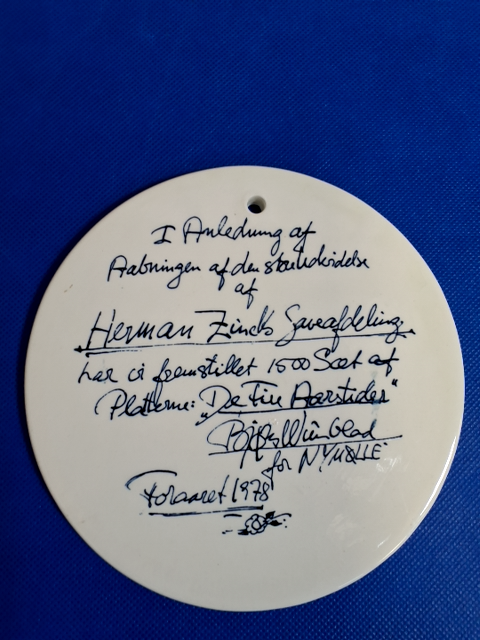 I Anledning af
Aabningen af den
af
Herman Zincks Gaveafdeling.
har vi fremstillet 1500 Sæt af
Platterne: „De Fire Aarstider"
Bjørn Wiinblad
for NYMØLLE
Foraaret 1978